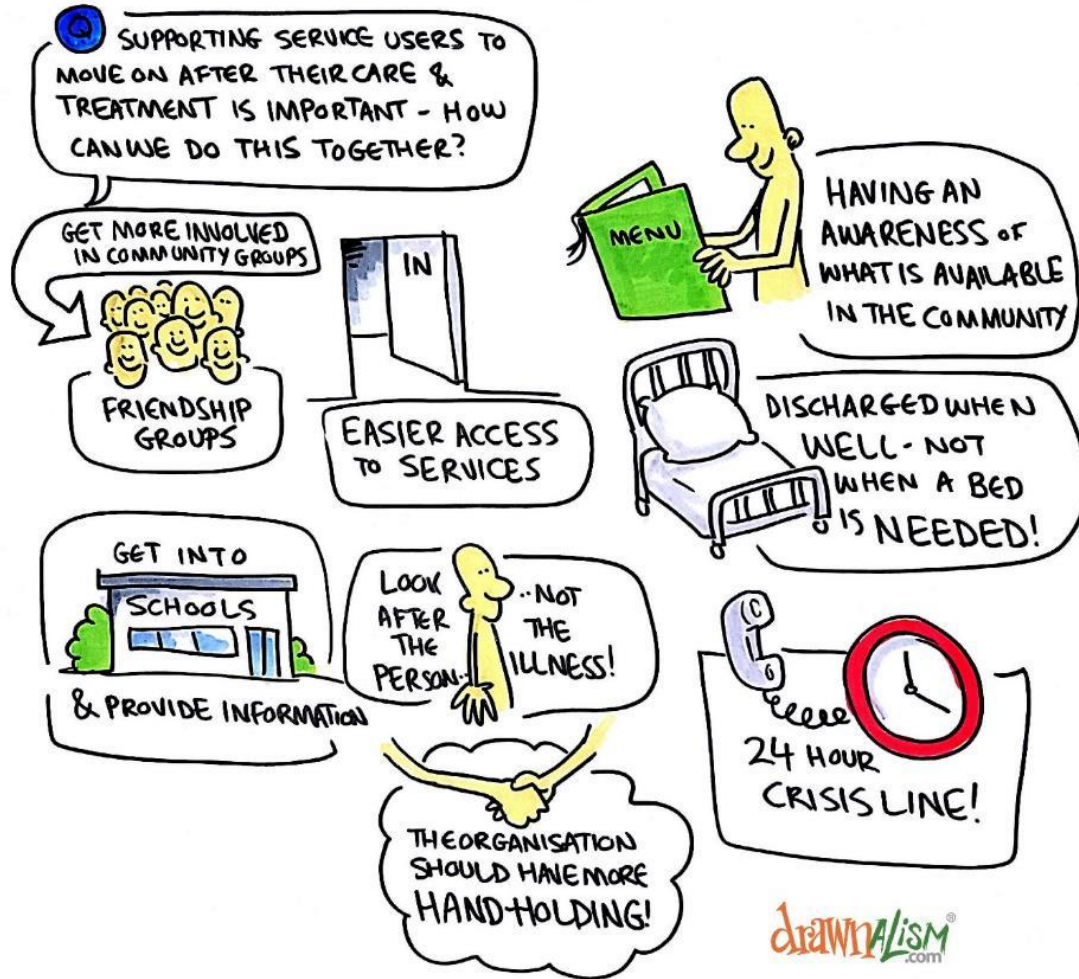 Q SUPPORTING SERVICE USERS TO
MOVE ON AFTER THEIR CARE &
TREATMENT IS IMPORTANT - HOW
CAN WE DO THIS TOGETHER?
GET MORE INVOLVED
IN COMMUNITY GROUPS
FRIENDSHIP
GROUPS
IN
EASIER ACCESS
TO SERVICES
MENU
HAVING AN
AWARENESS OF
WHAT IS AVAILABLE
IN THE COMMUNITY
DISCHARGED WHEN
WELL - NOT
WHEN A BED
IS NEEDED!
GET INTO
SCHOOLS
& PROVIDE INFORMATION
LOOK
AFTER
THE
PERSON..
..NOT
THE
ILLNESS!
THE ORGANISATION
SHOULD HAVE MORE
HAND-HOLDING!
24 HOUR
CRISIS LINE!
drawnALiSM®
.com